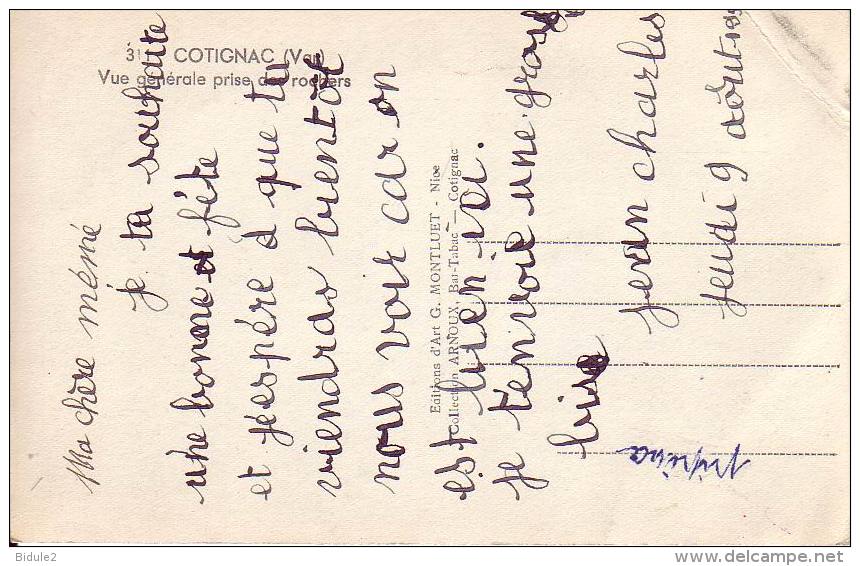 31 COTIGNAC (Var)
Vue générale prise des rochers
Ma chère mémé
je ta souhaite
une bonne et fête
et j'espére à que tu
viendras bientôt
nous voir car on
est bien ici.
je t'envoie une grosse
bise
jean charles
jeudi 9 aôut-195
Editions d'Art G. MONTLUET - Nice
Collection ARNOUX, Bar-Tabac — Cotignac
Bidule2
www.delcampe.net